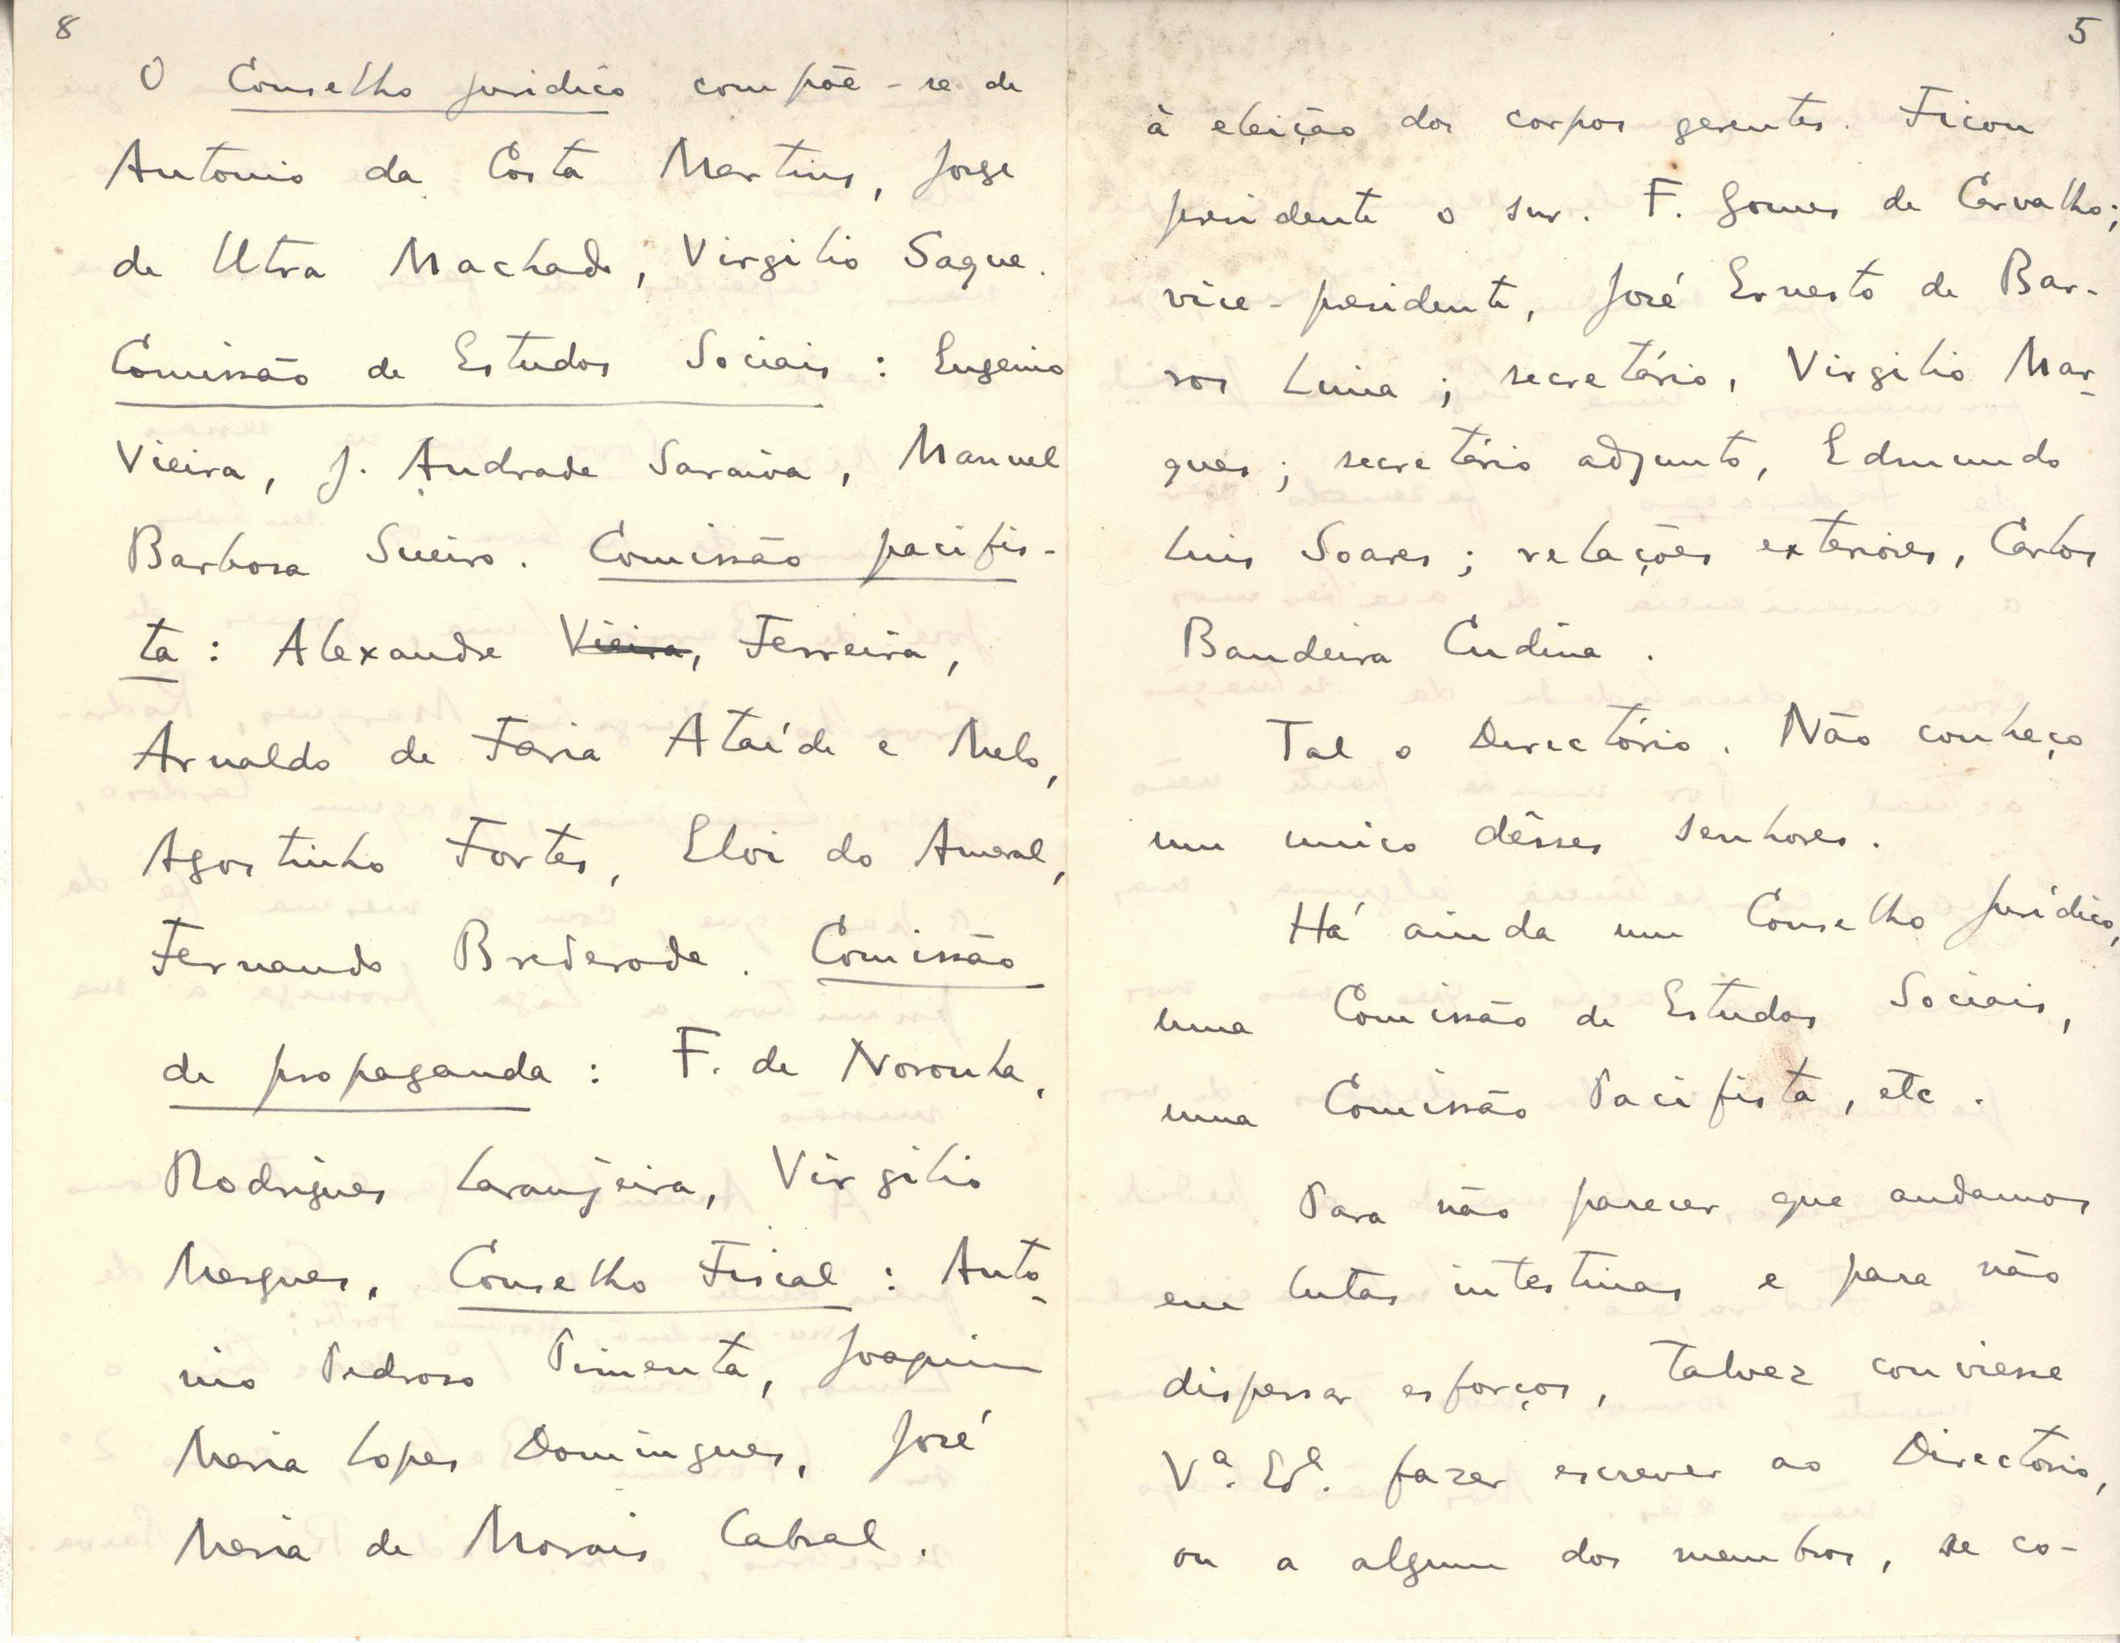 8
O Conselho Juridico compõe-se de
Antonio da Costa Martins, Jorge
de Utra Machado, Virgilio Saque.
Comissão de Estudos Sociais : Eugenio
Vieira, J. Andrade Saraiva, Manuel
Barbosa Sueiro. Comissão pacifis-
ta : Alexandre Vieira, Ferreira,
Arnaldo de Faria Ataíde e Melo,
Agostinho Fortes, Eloi do Amaral,
Fernando Brederode. Comissão
de propaganda : F. de Noronha,
Rodrigues Laranjeira, Virgilio
Marques, Conselho Fiscal : Anto-
nio Pedroso Pimenta, Joaquim
Maria Lopes Domingues, José
Maria de Morais Cabral.
5
à eleição dos corpos gerentes. Ficou
presidente o snr. F. Gomes de Carvalho;
vice-presidente, José Ernesto de Bar-
ros Lima ; secretário, Virgilio Mar-
ques ; secretário adjunto, Edmundo
Luis Soares ; relações exteriores, Carlos
Bandeira Codina.
Tal o Directório. Não conheço
um unico dêsses senhores.
Há ainda um Conselho Jurídico,
uma Comissão de Estudos Sociais,
uma Comissão Pacifista, etc.
Para não parecer que andamos
em lutas intestinas e para não
dispersar esforços, talvez conviesse
Vª. Edª. fazer escrever ao Directorio,
ou a algum dos membros, se co-